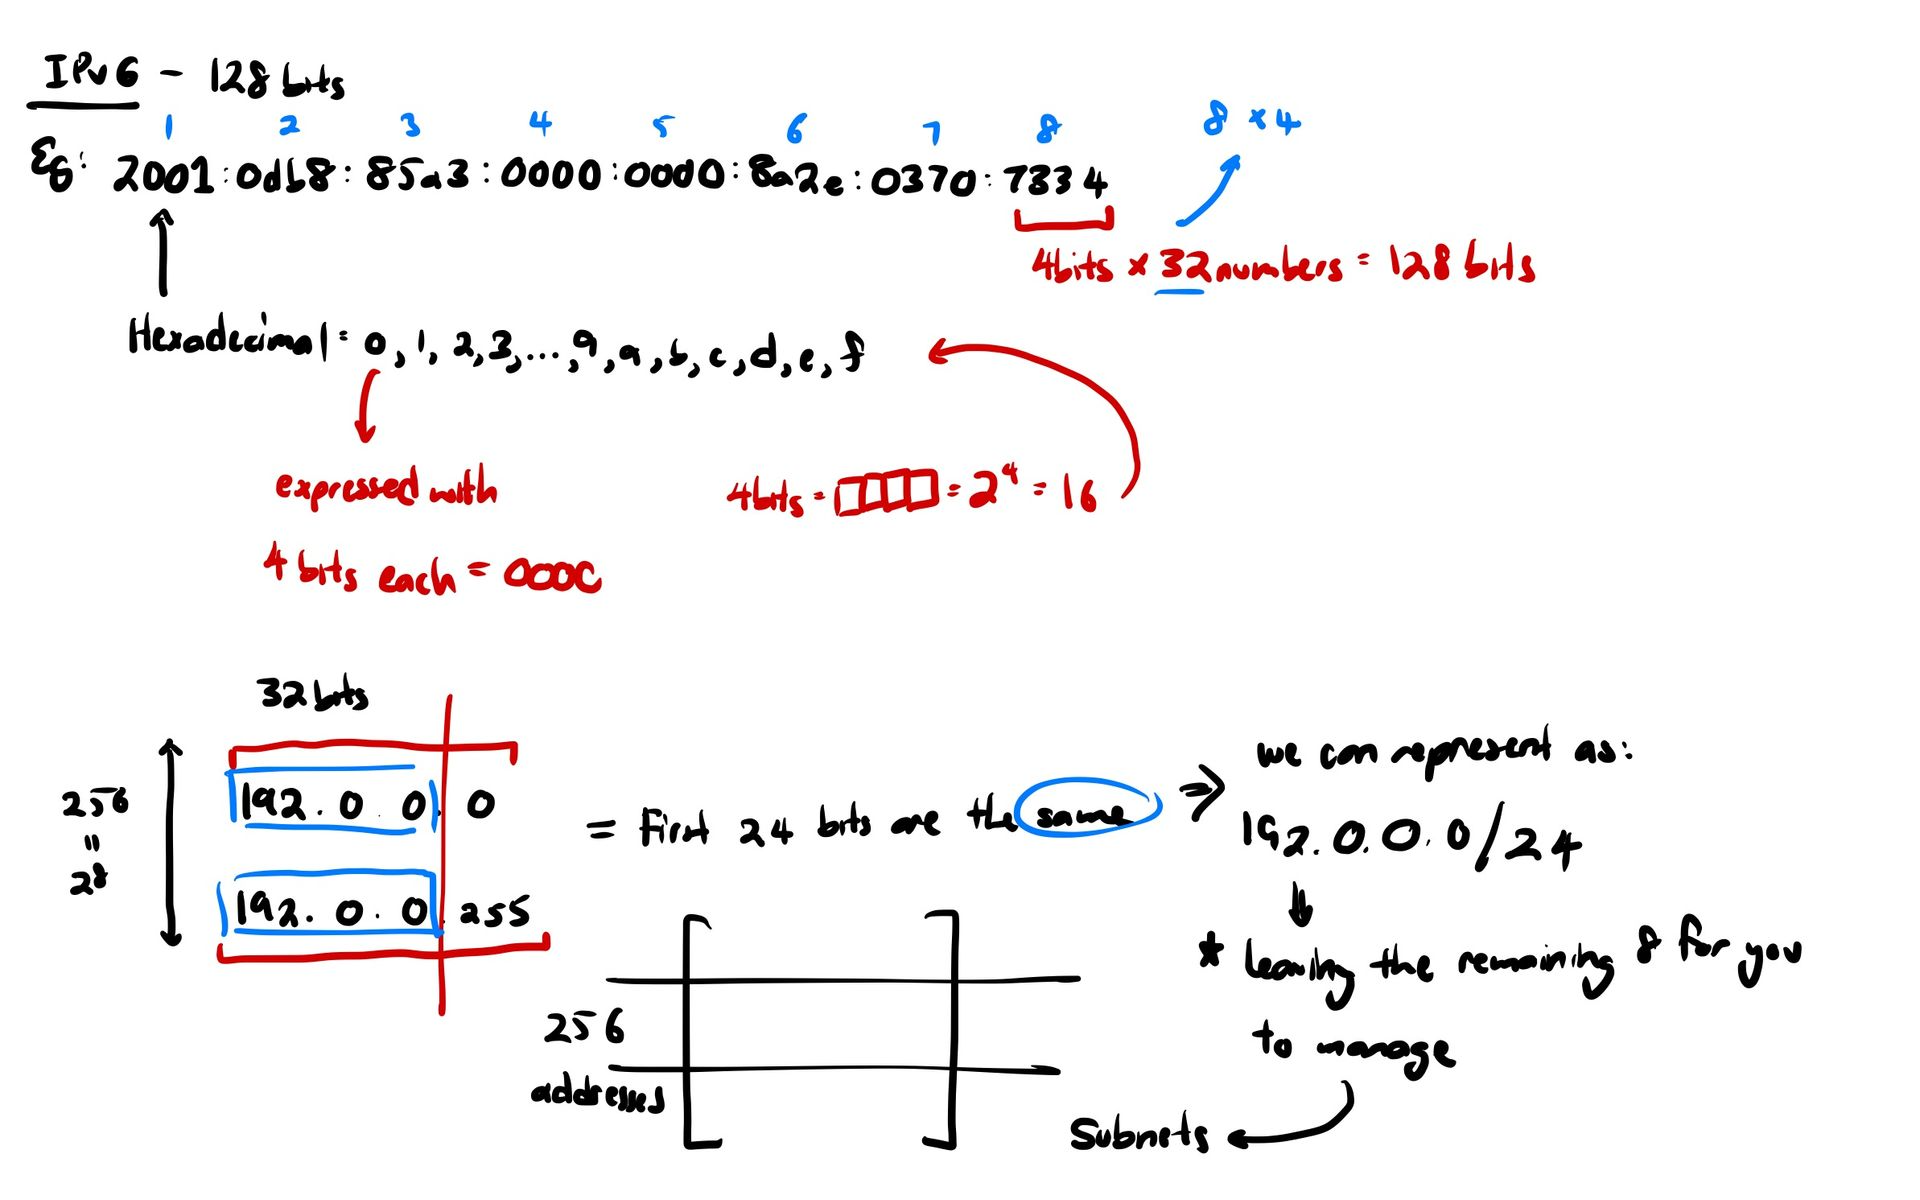 IPv6 - 128 bits
1 2 3 4 5 6 7 8 8 × 4
Eg: 2001:0db8:85a3:0000:0000:8a2e:0370:7334
4bits × 32 numbers = 128 bits
Hexadecimal = 0, 1, 2, 3, ..., 9, a, b, c, d, e, f
expressed with
4 bits each = 0000
4bits = = 2^4 = 16
32 bits
256
=
2^8
192.0.0.0
192.0.0.255
= First 24 bits are the same ⇒
we can represent as:
192.0.0.0/24
* leaving the remaining 8 for you
to manage
Subnets
256
addresses